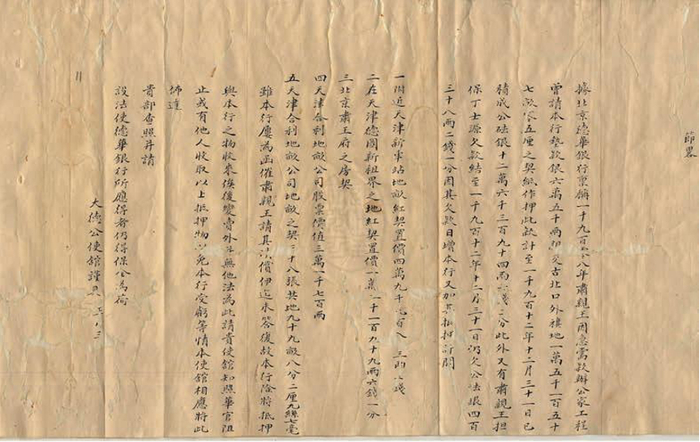 節畧
據北京德華銀行稟稱一千九百八年肅親王因急需款辦公家工程
曾請本行墊款銀六萬五千兩伊交古北口外揵地一萬五千一百五十
七畝零五厘之契紙作押此款計至一千九百十二年十二月三十一日已
積成公砝銀十二萬六千三百九十四兩錢二分此外又有肅親王担
保丁士源欠款結至一千九百十二年十二月三十一日仍欠公法銀四百
三十八兩二錢一分因其欠款日增本行又加其抵押訂開
一附近天津新車站地畝紅契置價四萬九千兩
二在天津德國新租界之地紅契置價一萬一千一百九十九兩六錢一分
三北京肅王府之房契
四天津合利地畝公司股票價值三萬一千七百兩
五天津合利地畝公司地畝之契十八張共地九十九畝八分二厘九絲七毫
雖本行屢為函催肅親王請其以價伊迄未答復故本行除將抵押
與本行之物收來俟後變賣外別無他法為此請貴使館知照華官阻
止或有他人收取以上抵押物以免本行受虧等情本使館相應將此
師達
貴部查照并請
設法使德華銀行所應得者仍得保全為荷
大德公使館謹具